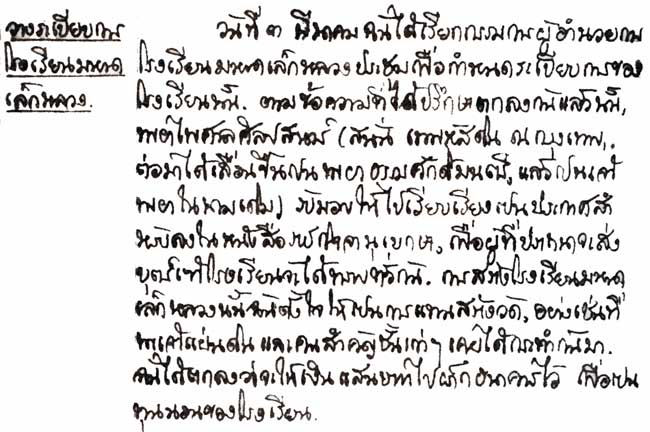 วางระเบียบการ
โรงเรียนมหาด
เล็กหลวง.
วันที่ ๓ มีนาคม ฉันได้เรียกกรรมการผู้อำนวยการ
โรงเรียนมหาดเล็กหลวงประชุมเพื่อกำหนดระเบียบการของ
โรงเรียนนั้น. ตามข้อความที่ได้ปรึกษาตกลงกันแล้วนั้น,
พระยาไพศาลศิลปสาตร์ (สนั่น เทพหัสดิน ณกรุงเทพ,
ต่อมาได้เลื่อนขึ้นเป็นพระยาธรรมศักดิ์มนตรี, แล้วเป็นเจ้า
พระยาในนามเดิม) รับมอบให้ไปเรียบเรียงเป็นประกาศสำ
หรับลงในหนังสือราชกิจจานุเบกษา, เพื่อผู้ที่ปรารถนาจะส่ง
บุตร์เข้าโรงเรียนจะได้ทราบทั่วกัน. การสร้างโรงเรียนมหาด
เล็กหลวงนั้นฉันตั้งใจให้เป็นการแทนสร้างวัด, อย่างเช่นที่
พระเจ้าแผ่นดิน และคนสำคัญชั้นเก่าๆ เคยได้กระทำกันมา.
ฉันได้ตกลงว่าจะให้เงินแสนบาทไปฝากธนาคารไว้ เพื่อเป็น
ทุนนอนของโรงเรียน.